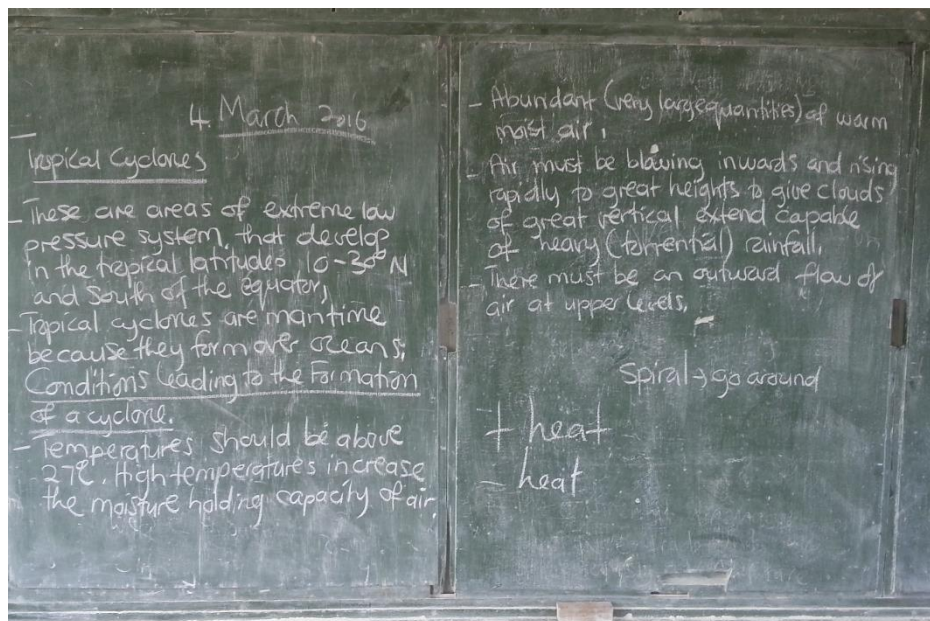 4. March 2016
Tropical Cyclones
- These are areas of extreme low
pressure system, that develop
in the tropical latitudes 10-30° N
and South of the equator,
- Tropical cyclones are maritime
because they form over oceans,
Conditions leading to the Formation
of a cyclone.
- Temperatures should be above
27°C. High temperatures increase
the moisture holding capacity of air.
- Abundant (very large quantities) of warm
moist air.
- Air must be blowing inwards and rising
rapidly to great heights to give clouds
of great vertical extend capable
of heavy (torrential) rainfall.
- There must be an outward flow of
air at upper levels.
Spiral → go around
+ heat
- heat